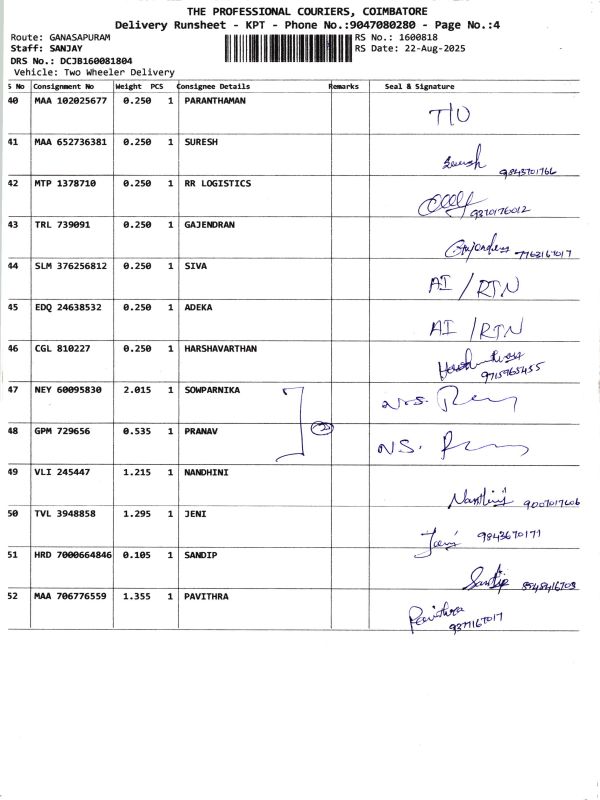 THE PROFESSIONAL COURIERS, COIMBATORE
Delivery Runsheet - KPT - Phone No.:9047080280 - Page No.:4
Route: GANASAPURAM RS No.: 1600818
Staff: SANJAY RS Date: 22-Aug-2025
DRS No.: DCJB160081804
Vehicle: Two Wheeler Delivery
S No Consignment No Weight PCS Consignee Details Remarks Seal & Signature
40 MAA 102025677 0.250 1 PARANTHAMAN T/U
41 MAA 652736381 0.250 1 SURESH Suresh 9843701766
42 MTP 1378710 0.250 1 RR LOGISTICS 9370176012
43 TRL 739091 0.250 1 GAJENDRAN 7763167017
44 SLM 376256812 0.250 1 SIVA AI / RTN
45 EDQ 24638532 0.250 1 ADEKA AI / RTN
46 CGL 810227 0.250 1 HARSHAVARTHAN 9715965455
47 NEY 60095830 2.015 1 SOWPARNIKA N.S.
48 GPM 729656 0.535 1 PRANAV NS.
49 VLI 245447 1.215 1 NANDHINI 9007017606
50 TVL 3948858 1.295 1 JENI Jeni 9843670171
51 HRD 7000664846 0.105 1 SANDIP Sandip 8948416709
52 MAA 706776559 1.355 1 PAVITHRA Pavithra
9377167017